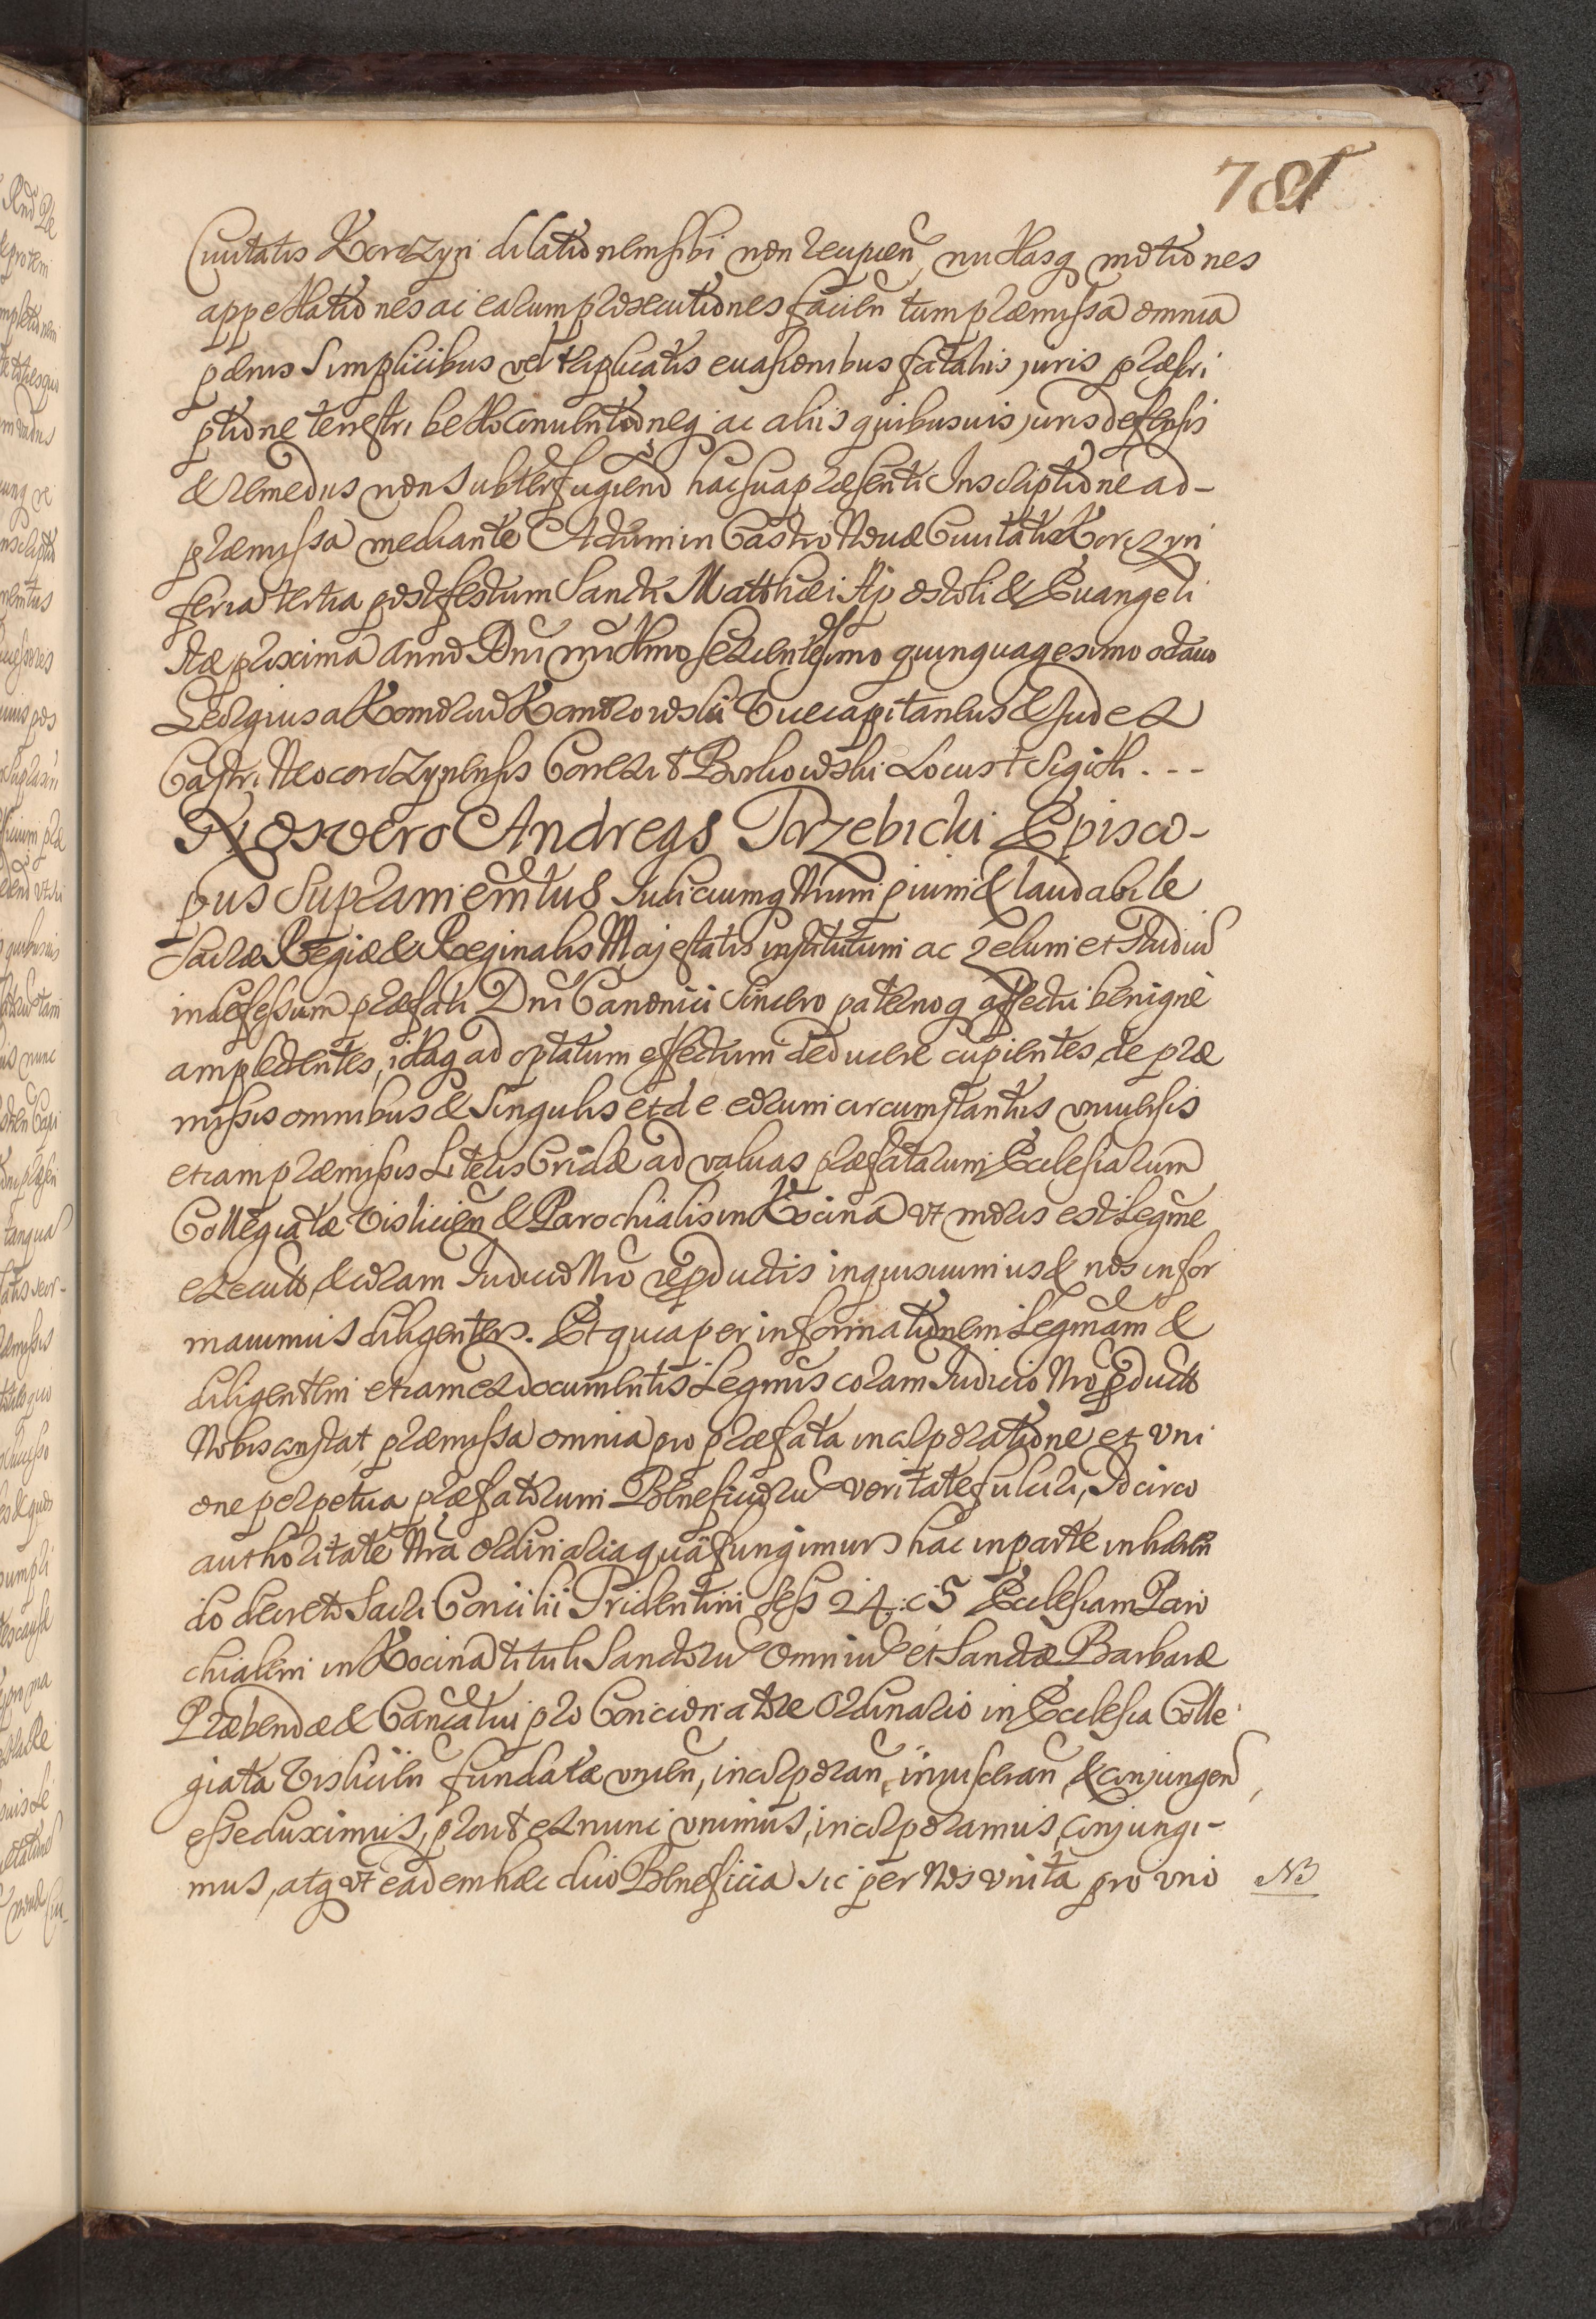 781
Civitatis Korczyn dilationem sibi non recipien nullasq motiones
appellationes ac earum prosecutiones facien tum præmissa omnia
pœnis simplicibus vel triplicatis evasionibus fataliis juris præscri
ptione terrestri bello conventioneq ac aliis quibusvis juris defensis
& remediis non subterfugiend hac sua præsenti Inscriptione ad-
præmissa mediante Actum in Castro Novæ Civitatis Korczyn
feria tertia post festum Sancti Matthæi Apostoli & Euangeli
stæ proxima anno Dni millmo sexcentesimo quinquagesimo octavo
Georgius a Kondrad Kondrowski Vicecapitaneus & Judex
Castri Neocorczynensis Correxit Borkowski Locus + Sigilli . - -
Nos vero Andreas Trzebicki Episco-
pus Supramemtus Judiciumq Nrum pium & laudabile
Sacræ Regiæ & Reginalis Majestatis institutum ac zelum et studiu
indefessum præfati Dni Canonici sincero paternoq affectu benigne
amplectentes, illaq ad optatum effectum deducere cupientes, de præ
missis omnibus & singulis et de eorum circumstantiis universis
etiam præmissis Literis Cridæ ad valvas præfatarum Ecclesiarum
Collegiatæ Vislicien & Parochialis in Kocina vt moris est Legme
executis & coram Judicio Nro reproductis inquisivimus & nos infor
mavimus diligenter. Et quia per informationem Legmam &
diligentem etiam ex documentis Legmis coram Judicio Nro productis
Nobis constat, præmissa omnia pro præfata incorporatione et vni
one perpetua præfatorum Beneficioru veritate fulciri, Idcirco
authoritate Nra Ordinaria qua fungimur hac in parte inhæren
do decreto Sacri Concilii Tridentini Sess 24. c 5 Ecclesiam Paro
chialem in Kocina tituli Sanctoru Omniu et Sanctæ Barbaræ
Præbendæ & Canõcatui pro Concionatore Ordinario in Ecclesia Colle
giata Vislicien fundatæ vnien, incorporan, & conjungen,
esse duximus, prout ex nunc vnimus, incorporamus, conjungi-
mus, atq vt eadem hæc duo Beneficia sic per Nos vnita pro vno
NB